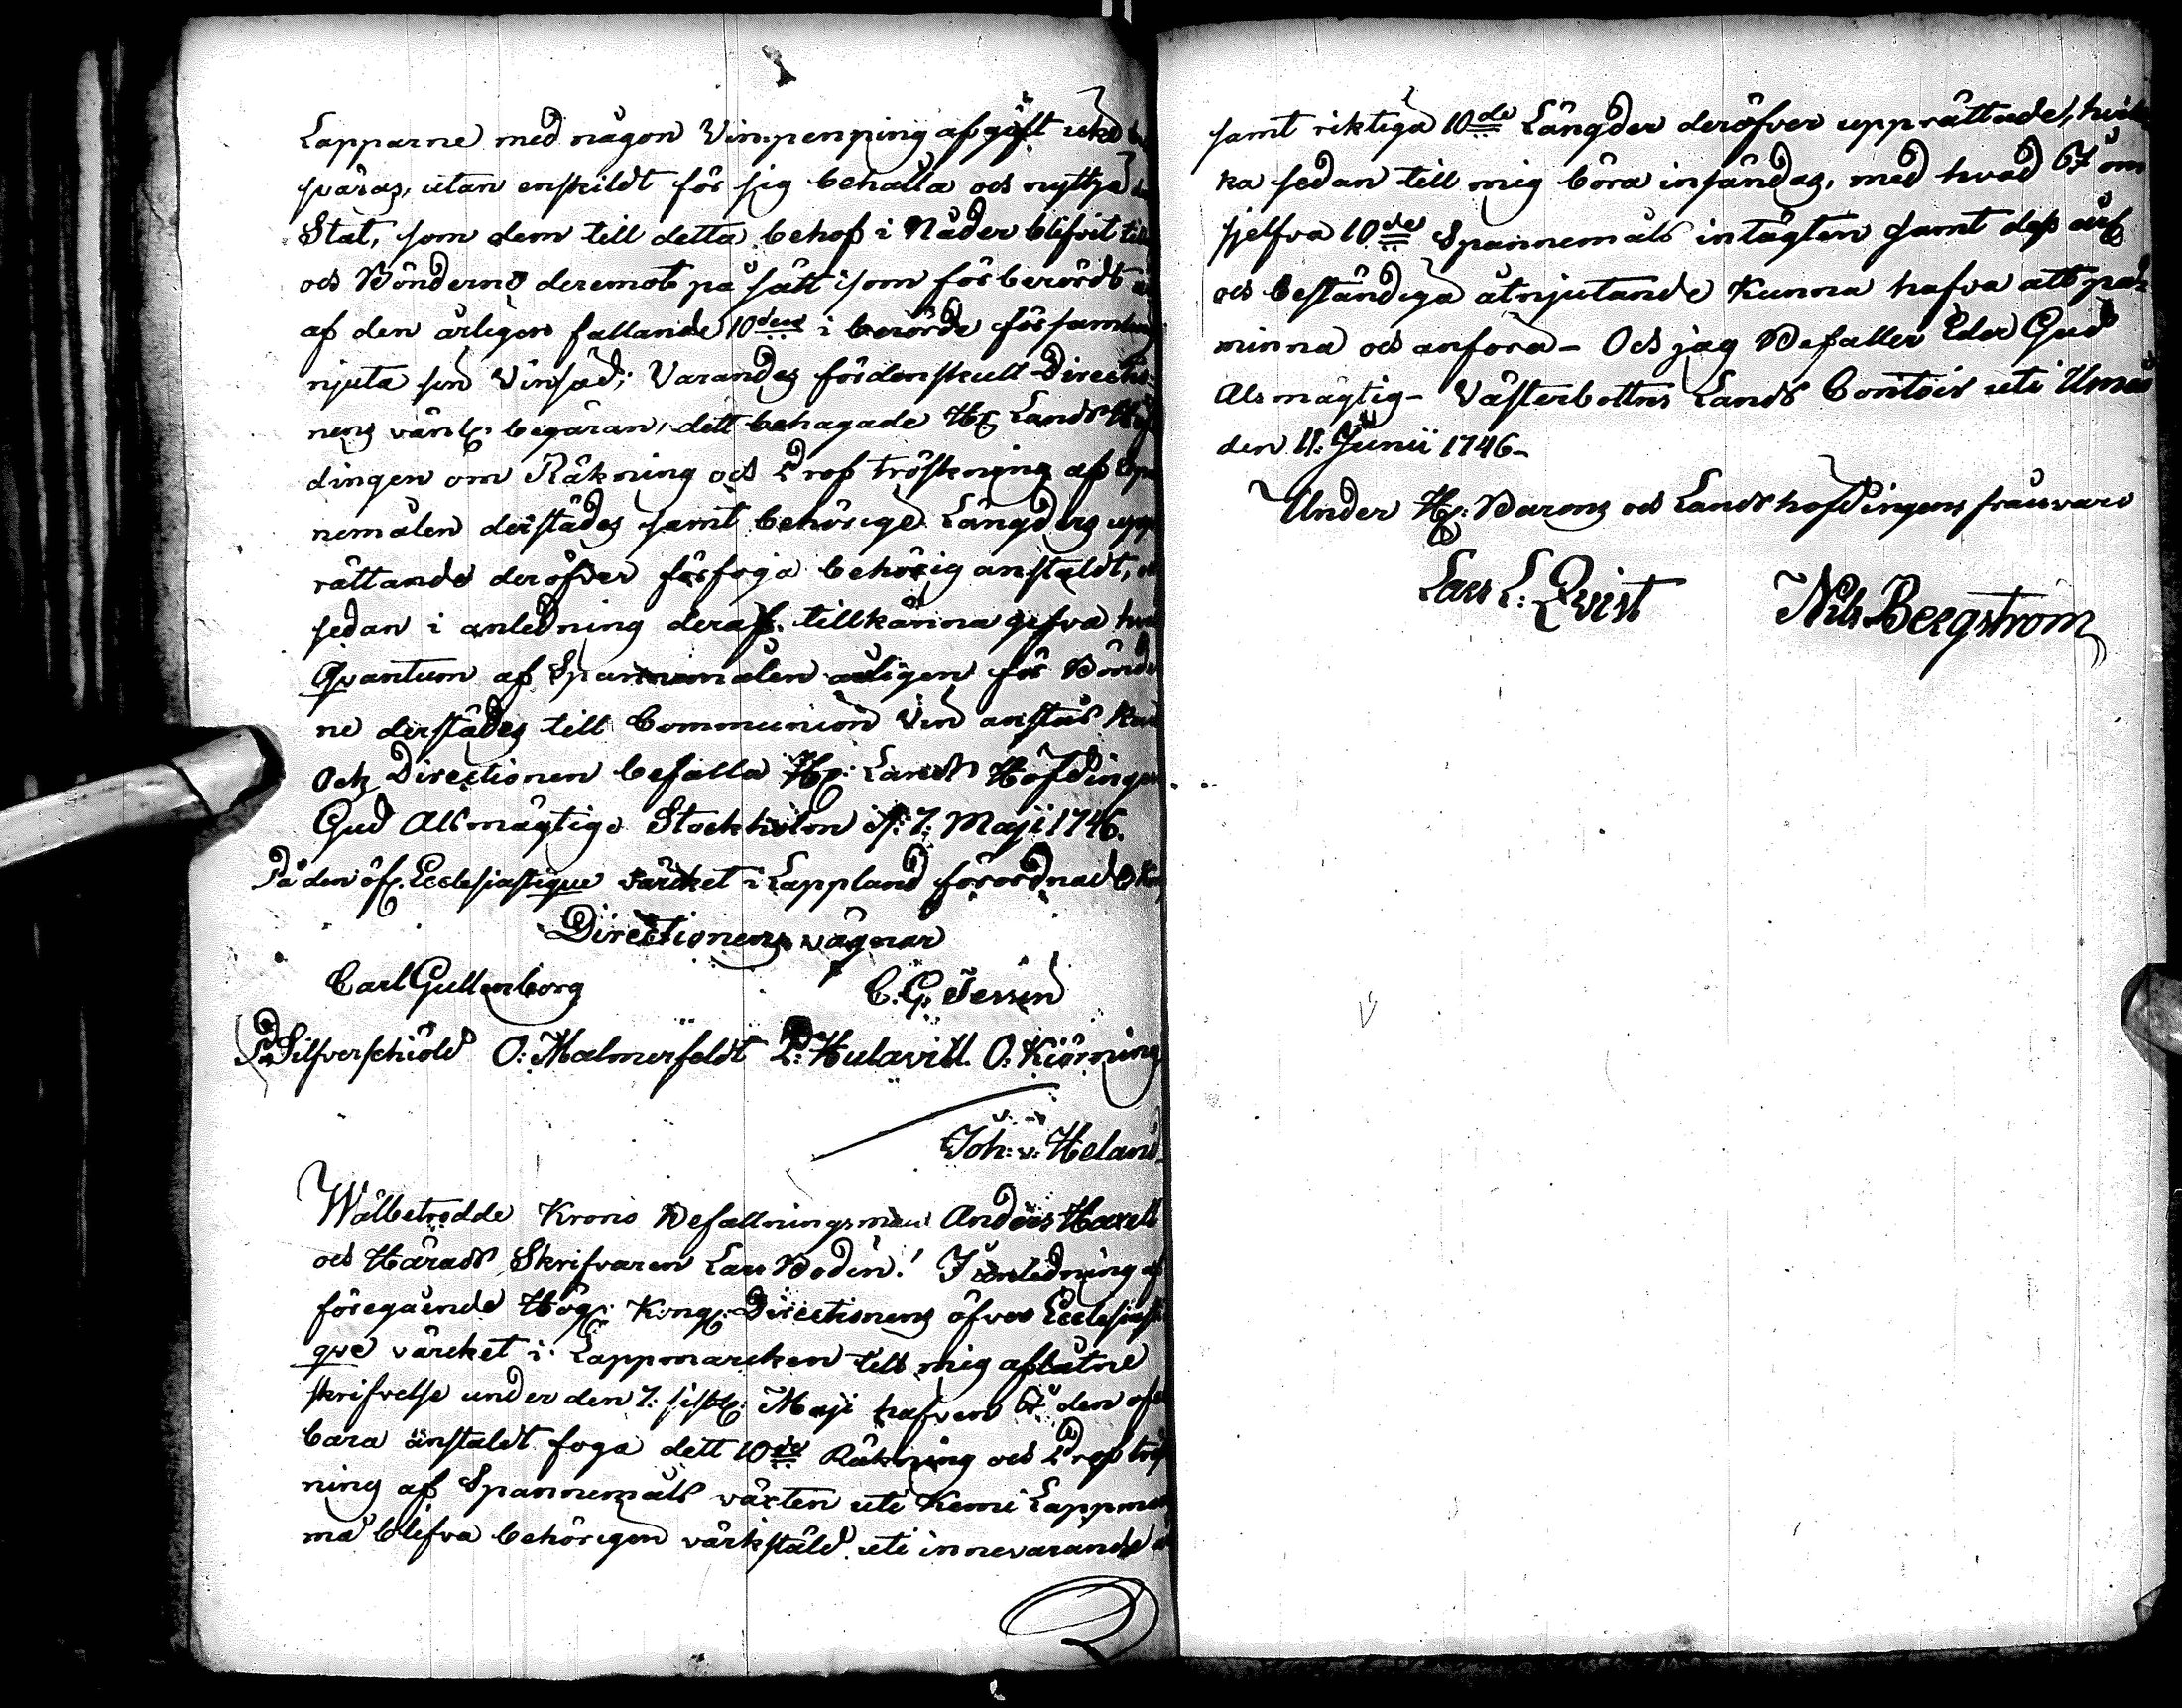 Lapparne med någon Vinpenning afgift icke
späras, utan enskildt för sig behålla och nyttja
Stat, som dem till detta behof i Nåder blifvit till
och Bönderne deremot på sätt som förberördt
af den årligen fallande 10den i berörde församl
njuta sin Vinsäd; Varandes fördenskull Directio-
nens vänl. begäran, dett behagade Hr Lands Höf
dingen om Räkning och Prof tröskning af Span
nemålen derstädes samt behörige Längders upp
rättande deröfver förfoga behörig anstaldt,
sedan i anledning deraf tillkänna gifva hvad
Qvantum af Spannemålen årligen för Bönder
ne derstädes till Communion Vin anstås kan
Och Directionen befalla Hr: Lands Höfdingen
Gud Alsmägtige Stockholm d: 7: Maji 1746.
På den öf. Ecclesiastique värcket i Lappland förordnade Kon
Directionens vägnar
Carl Gyllenborg C. G. Tessin
Silfverschiöld O: Malmerfeldt O: Kiörning
Joh: v: Heland
Wälbetrodde Krono Befallningsman Anders Haxell
och Härads Skrifvaren Lars Bodin! I anledning af
föregående Högl. Kongl. Directionens öfver Ecclesiasti
qve värcket i Lappmarcken till mig aflåtne
skrifvelse under den 7: sistl: Maji hafven I den ofel
bara anstaldt foga dett 10de Räkning och Prof trösk
ning af Spannemåls växten uti Kemi Lappmark
må blifva behörigen värkstäld uti innevarande
samt riktiga 10de Längder deröfver upprättade, hvil
ka sedan till mig böra insändas, med hvad I om
sjelfva 10de Spannemåls intägten samt dess
och beständiga åtnjutande kunna hafva att på-
minna och anföra - Och jag Befaller Eder Gud
Alsmägtig - Västerbottns Lands Contoir uti Umeå
den 11. Junii 1746 -
Under Hr: Barons och Landshöfdingens frånvaro
Lars L: Qvist Nils Bergström